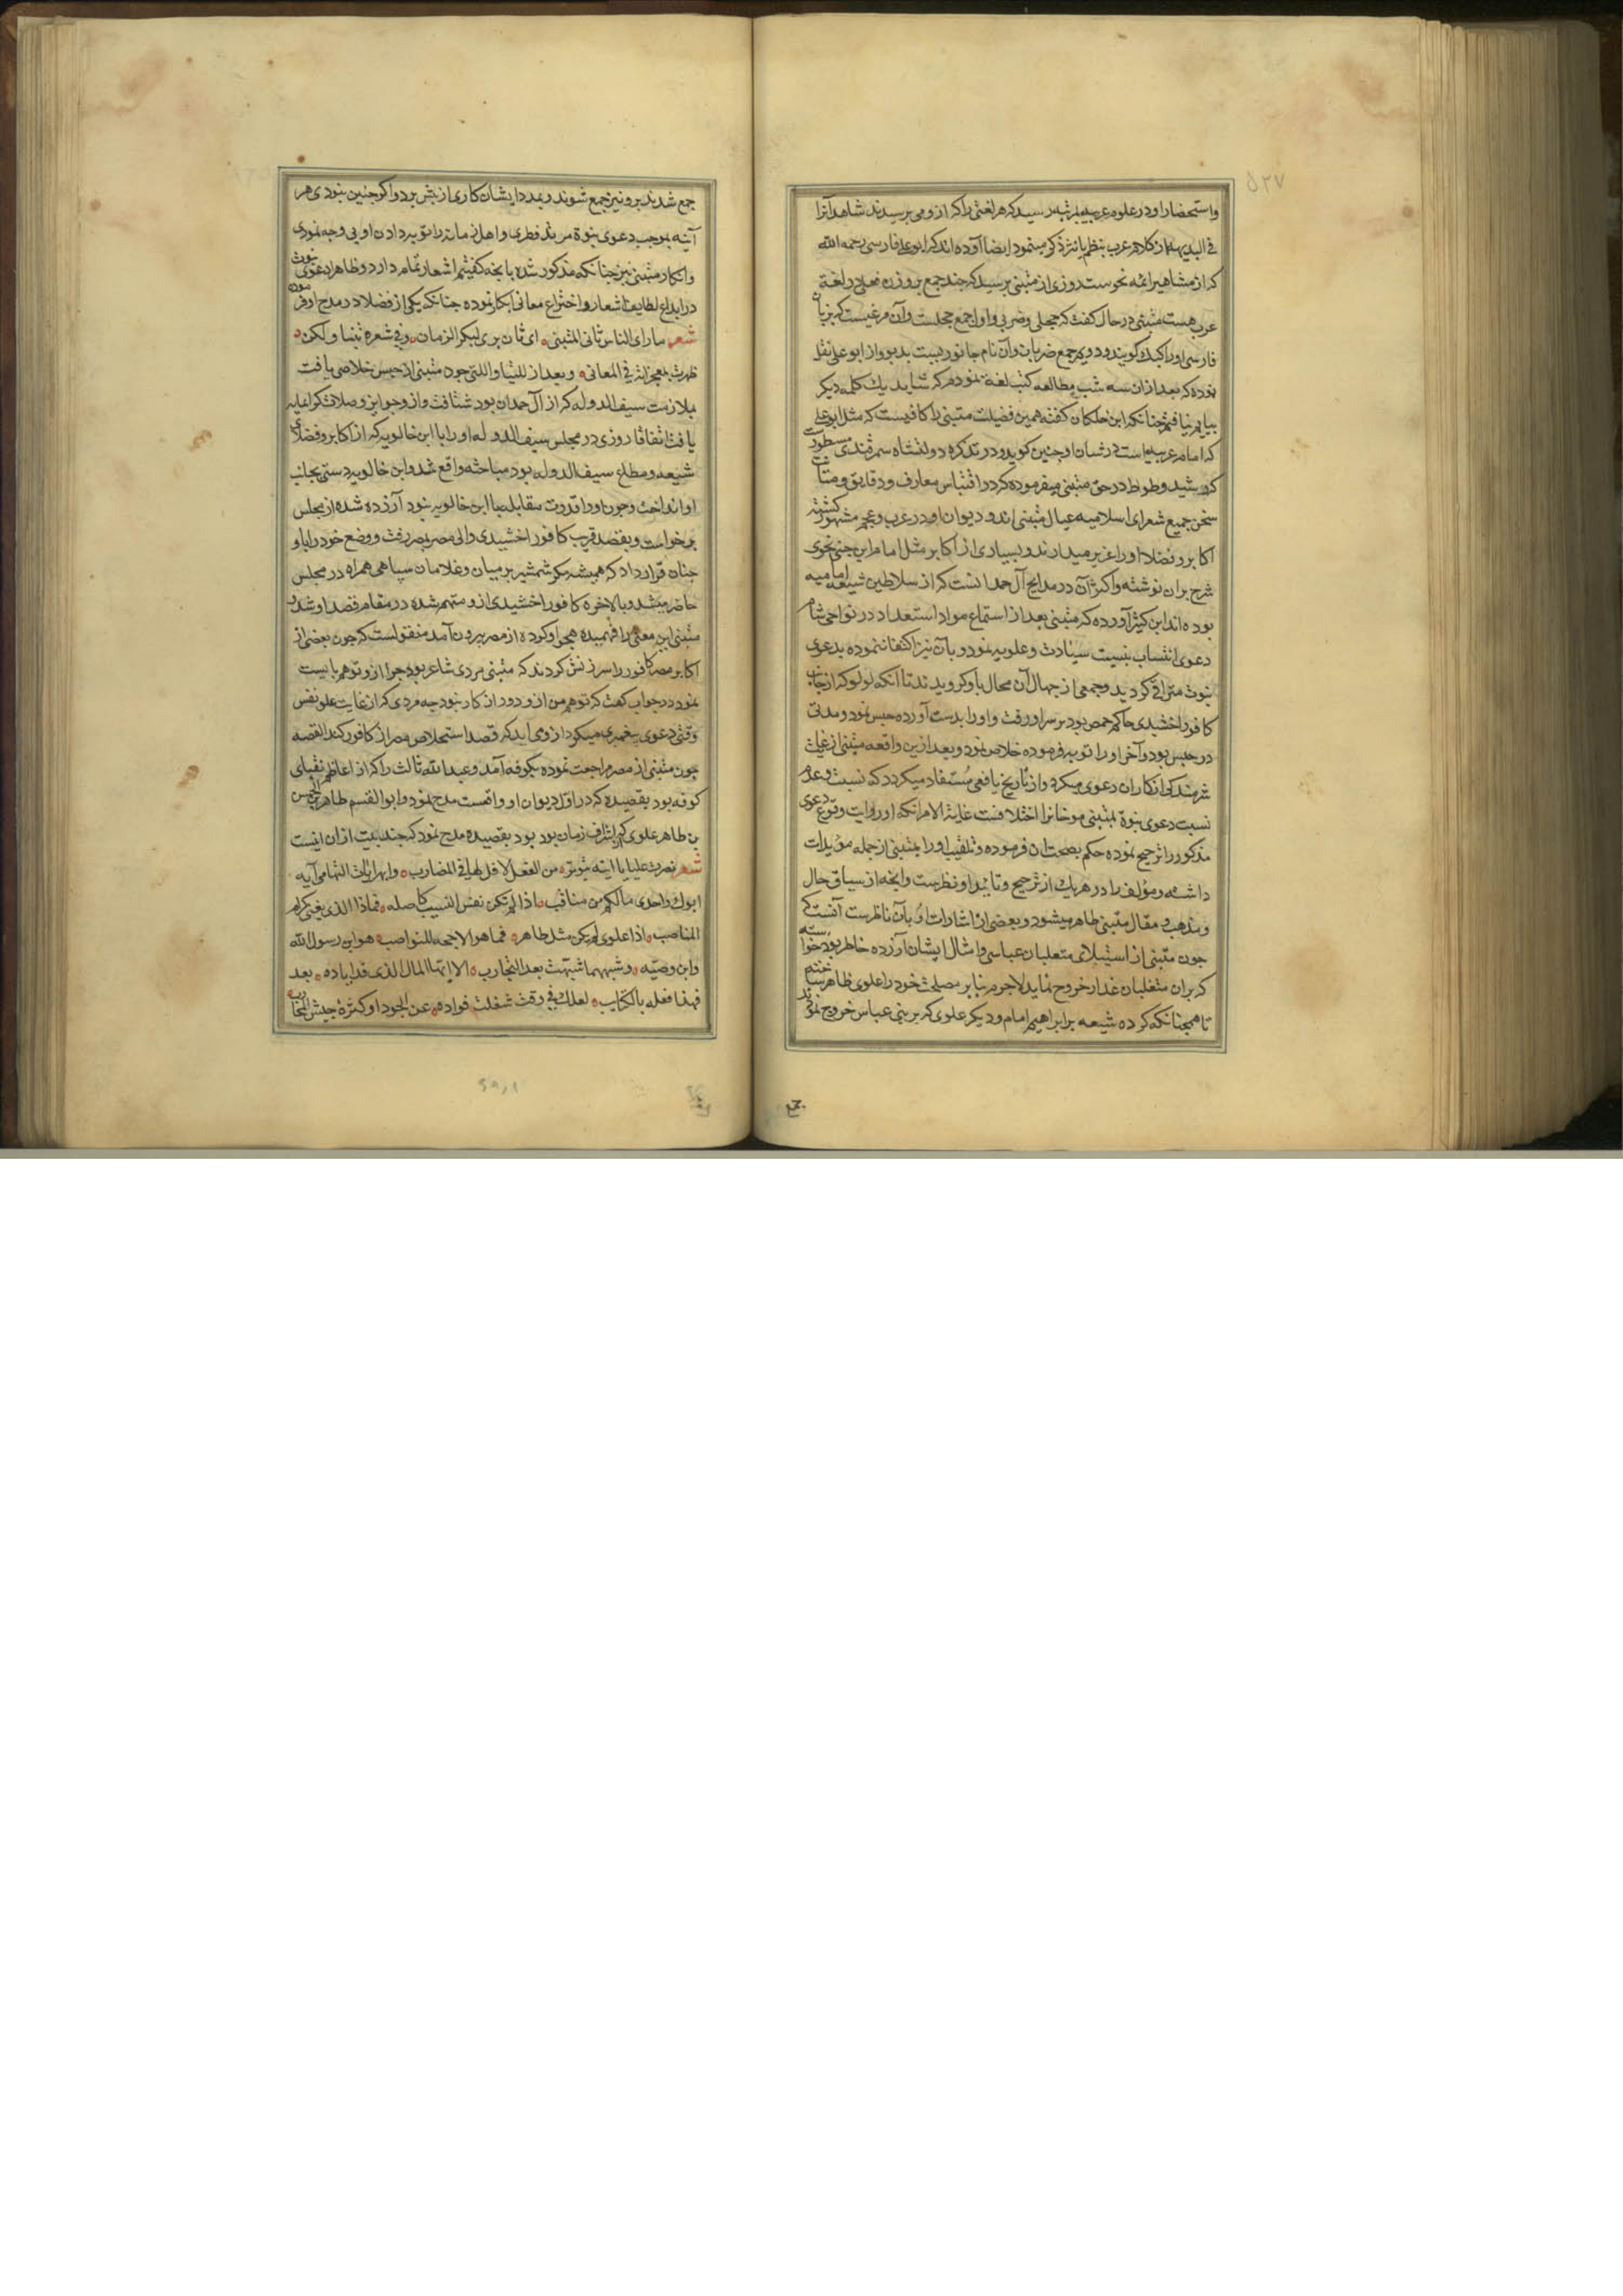 ۵۲۷
واستحضار او در علوم عربیه بمرتبه رسید که هر لغتی را که از و می پرسیدند شاهد آنرا
فی البدیهه از کلام عرب بنظم یا نثر ذکر مینمود ایضا آورده اند که ابو علی فارسی رحمه الله
که از مشاهیر ائمه نحوست روزی از متنبی پرسید که چند جمع بر وزن فعلی در لغة
عرب هست متنبی در حال کفت که حجلی وضربی واول جمع حجلست وآن مرغیست که بزبان
فارسی اورا کبک کویند ودویم جمع ضربان وآن نام جانوریست بد بو واز ابو علی نقل
نموده که بعد از ان سه شب مطالعه کتب لغة نمودم که شاید یک کلمه دیکر
بیابم نیافتم چنانکه ابن خلکان کفته همین فضیلت متنبی را کافیست که مثل ابو علی
که امام عربیه است در شان او چنین کوید ودر تذکره دولتشاه سمرقندی مسطورست
که رشید وطواط در حق متنبی میفرموده که در اقتباس معارف ودقایق ومتانت
سخن جمیع شعرای اسلامیه عیال متنبی اند ودیوان او در عرب وعجم مشهور کشته
اکابر وفضلا اورا عزیز میدارند وبسیاری از اکابر مثل امام ابن جنی نحوی
شرح بران نوشته واکثر آن در مدایح آل حمدانست که از سلاطین شیعه امامیه
بوده اند ابن کثیر آورده که متنبی بعد از استماع مواد استعداد در نواحی شام
دعوی انتساب بنسبت سیادت وعلویه نمود وبآن نیز اکتفا ننموده بدعوی
نبوت مترقی کردید وجمعی از جهال آن محال باو کرویدند تا آنکه لولو که از جانب
کافور اخشیدی حاکم حمص بود بر سر او رفت واورا بدست آورده حبس نمود ومدتی
در حبس بود وآخر اورا توبه فرموده خلاص نمود وبعد ازین واقعه متنبی از غایت
شرمندکی انکار ان دعوی میکرد واز تاریخ یافعی مستفاد میکردد که نسبت وعدم
نسبت دعوی نبوة بمتنبی مورخانرا اختلافست غایة الامر انکه او روایت وقوع دعوی
مذکور را ترجیح نموده حکم بصحت ان فرموده وتلقیب اورا بمتنبی از جمله مؤیدات
داشته ومؤلف را در هر یک از ترجیح وتأیید او نظرست وانچه از سیاق حال
ومذهب ومقال متنبی ظاهر میشود وبعضی از اشارات او بآن ناظرست آنست که
چون متنبی از استیلای متغلبان عباسی وامثال ایشان آزرده خاطر بود خواسته
که بران متغلبان غدار خروج نماید لاجرم بنا بر مصلحت خود را علوی ظاهر ساخته
تا همچنانکه کرده شیعه بر ابراهیم امام ودیکر علوی که بر بنی عباس خروج نمودند
جمع شدند برو نیز جمع شوند وبمدد ایشان کاری از پیش برد واکر چنین نبودی هر
آینه بموجب دعوی نبوة مرتد فطری واهل زمانه را توبه دادن او بی وجه نمودی
وانکار متنبی نیز چنانکه مذکور شد بانچه کفتیم اشعار تمام دارد وظاهرا دعوی نبوت
در ابداع لطایف اشعار واختراع معانی ابکار نموده چنانکه یکی از فضلا در مدح او فرموده
شعر ما رای الناس ثانی المتنبی ای ثان یری لبکر الزمان وفی شعره تنبا ولکن
ظهرت معجزاته فی المعانی وبعد از للتیا واللتی چون متنبی از حبس خلاصی یافت
بملازمت سیف الدوله که از آل حمدان بود شتافت واز وجوایز وصلات کرانمایه
یافت اتفاقا روزی در مجلس سیف الدوله اورا با ابن خالویه که از اکابر وفضلای
شیعه ومطلع سیف الدوله بود مباحثه واقع شد وابن خالویه دستی بجانب
او انداخت وچون اورا قدرت مقابله با ابن خالویه نبود آزرده شده از مجلس
برخواست وبقصد قرب کافور اخشیدی والی مصر بمصر رفت ووضع خود را با و
چنان قرار داد که همیشه کمر شمشیر بر میان وغلامان سپاهی همراه در مجلس
حاضر میشد وبالاخره کافور اخشیدی ازو متهم شده در مقام قصد او شد و
متنبی این معنی را فهمیده هجو او کرده از مصر بیرون آمد منقولست که چون بعضی از
اکابر مصر کافور را سرزنش کردند که متنبی مردی شاعر بود چرا ازو توهم بایست
نمود در جواب کفت که توهم من ازو دور از کار نبود چه مردی که از غایت علو نفس
وقتی دعوی پیغمبری میکرد ازو می آید که قصد استخلاص مصر از کافور کند القصه
چون متنبی از مصر مراجعت نموده بکوفه آمد وعبدالله ثالث را که از اعاظم نقبای
کوفه بود بقصیده که در اول دیوان او واقعست مدح نمود وابو القسم طاهر بن الحسن
بن طاهر علوی که از اشراف زمان بود بقصیده مدح نمود که چند بیت از ان اینست
شعر نصرت علیا یا ابنه بنوتره من الفعل لا فل لها فی المضارب وابهر ایات التهامی آیه
ابوک واحدی مالکم من مناقب اذا لم تکن نفس النسیب کاصله فماذا الذی یغنی کرام
المناصب اذا علوی لم یکن مثل طاهر فما هو الا حجه للنواصب هو ابن رسول الله
وابن وصیه وشبههما شبهت بعد التجارب الا ایها المال الذی قد اباده بعد
فهذا فعله بالکتایب لعلک فی وقت شغلت فواده عن الجود او کثرة جیش المحارب